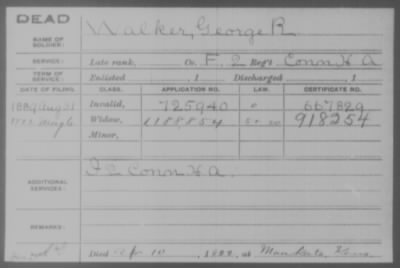 DEAD
NAME OF SOLDIER: Walker, George R.
SERVICE: Late rank, Co. F, 2 Reg't Conn H A
TERM OF SERVICE: Enlisted , 1 Discharged , 1
DATE OF FILING. CLASS. APPLICATION NO. LAW. CERTIFICATE NO.
1889 Aug 31 Invalid, 725940 667829
Widow, 1188854 918254
Minor,
ADDITIONAL SERVICES: F 2 Conn H A.
REMARKS:
Died 10, at Kans.